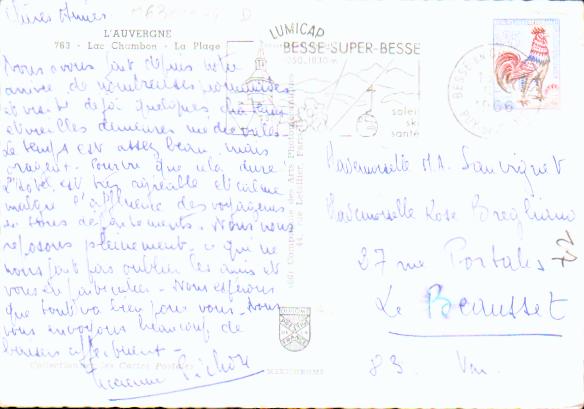 Chères Amies
L'AUVERGNE
763 - Lac Chambon - La Plage
Nous avons fait depuis notre
arrivée de nombreuses promenades
et visité déjà quelques châteaux
et vieilles demeures médiévales.
Le temps est assez beau mais
orageux. Pourvu que cela dure
L'hôtel est très agréable et calme
malgré l'affluence des voyageurs
de tous départements. Nous nous
reposons pleinement - ce qui ne
nous fait pas oublier les amis et
vous en particulier - Nous espérons
que tout va bien pour vous - Nous
vous envoyons beaucoup de
baisers affectueux -
Pichon
LUMICAP
BESSE-SUPER-BESSE
1050-1830 m
soleil
ski
santé
BESSE EN
66
Mademoiselle M.A. Sauvignet
Mademoiselle Rose Bregliano
27 rue Portales
Le Beausset
83. Var.
Compagnie des Arts Photomécaniques
44, rue Letellier, Paris
MEXICHROME